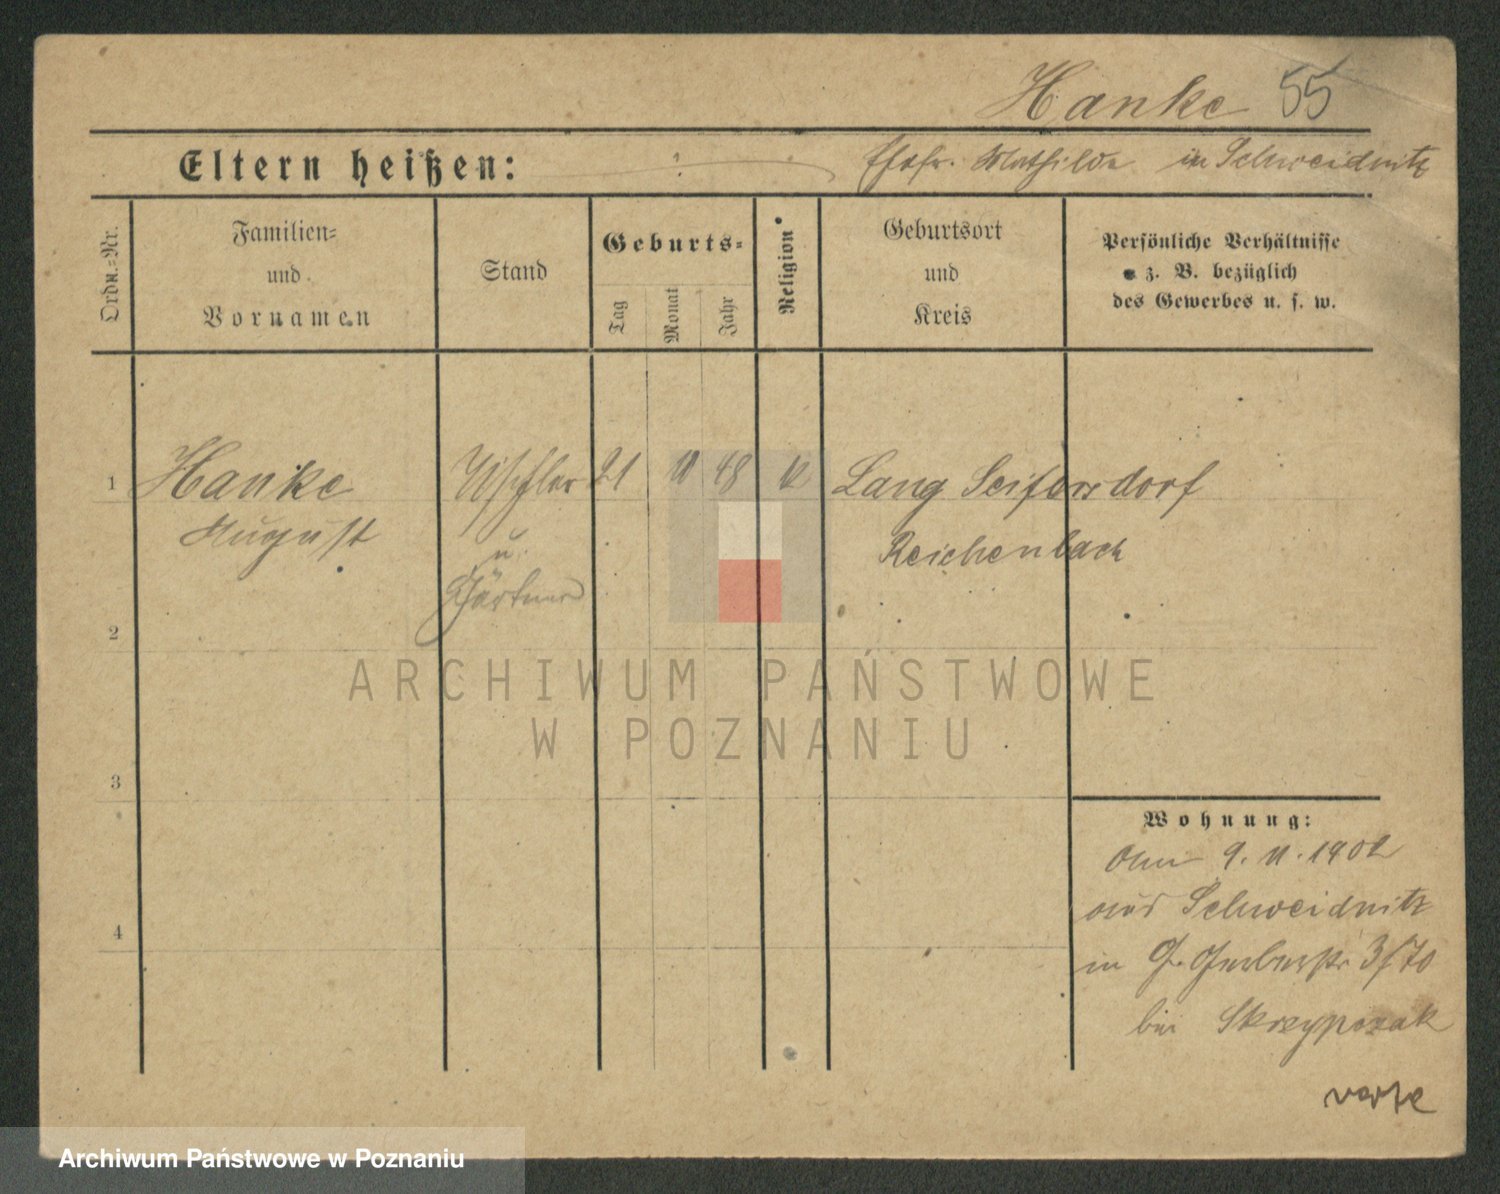 Hanke 55
Eltern heißen: Ehefr. Mathilde in Schweidnitz
Ordn.-Nr.
Familien-
und
Vornamen
Stand
Geburts-
Tag
Monat
Jahr
Religion
Geburtsort
und
Kreis
Persönliche Verhältnisse
z. B. bezüglich
des Gewerbes u. s. w.
1 Hanke Tischler 21 11 48 k Lang Seifersdorf
August u. Reichenbach
Gärtner
2
ARCHIWUM PAŃSTWOWE
W POZNANIU
3
Wohnung:
9. 11. 1902
4 aus Schweidnitz
in G. Gerberstr 3/70
bei Skrzypczak
verte
Archiwum Państwowe w Poznaniu